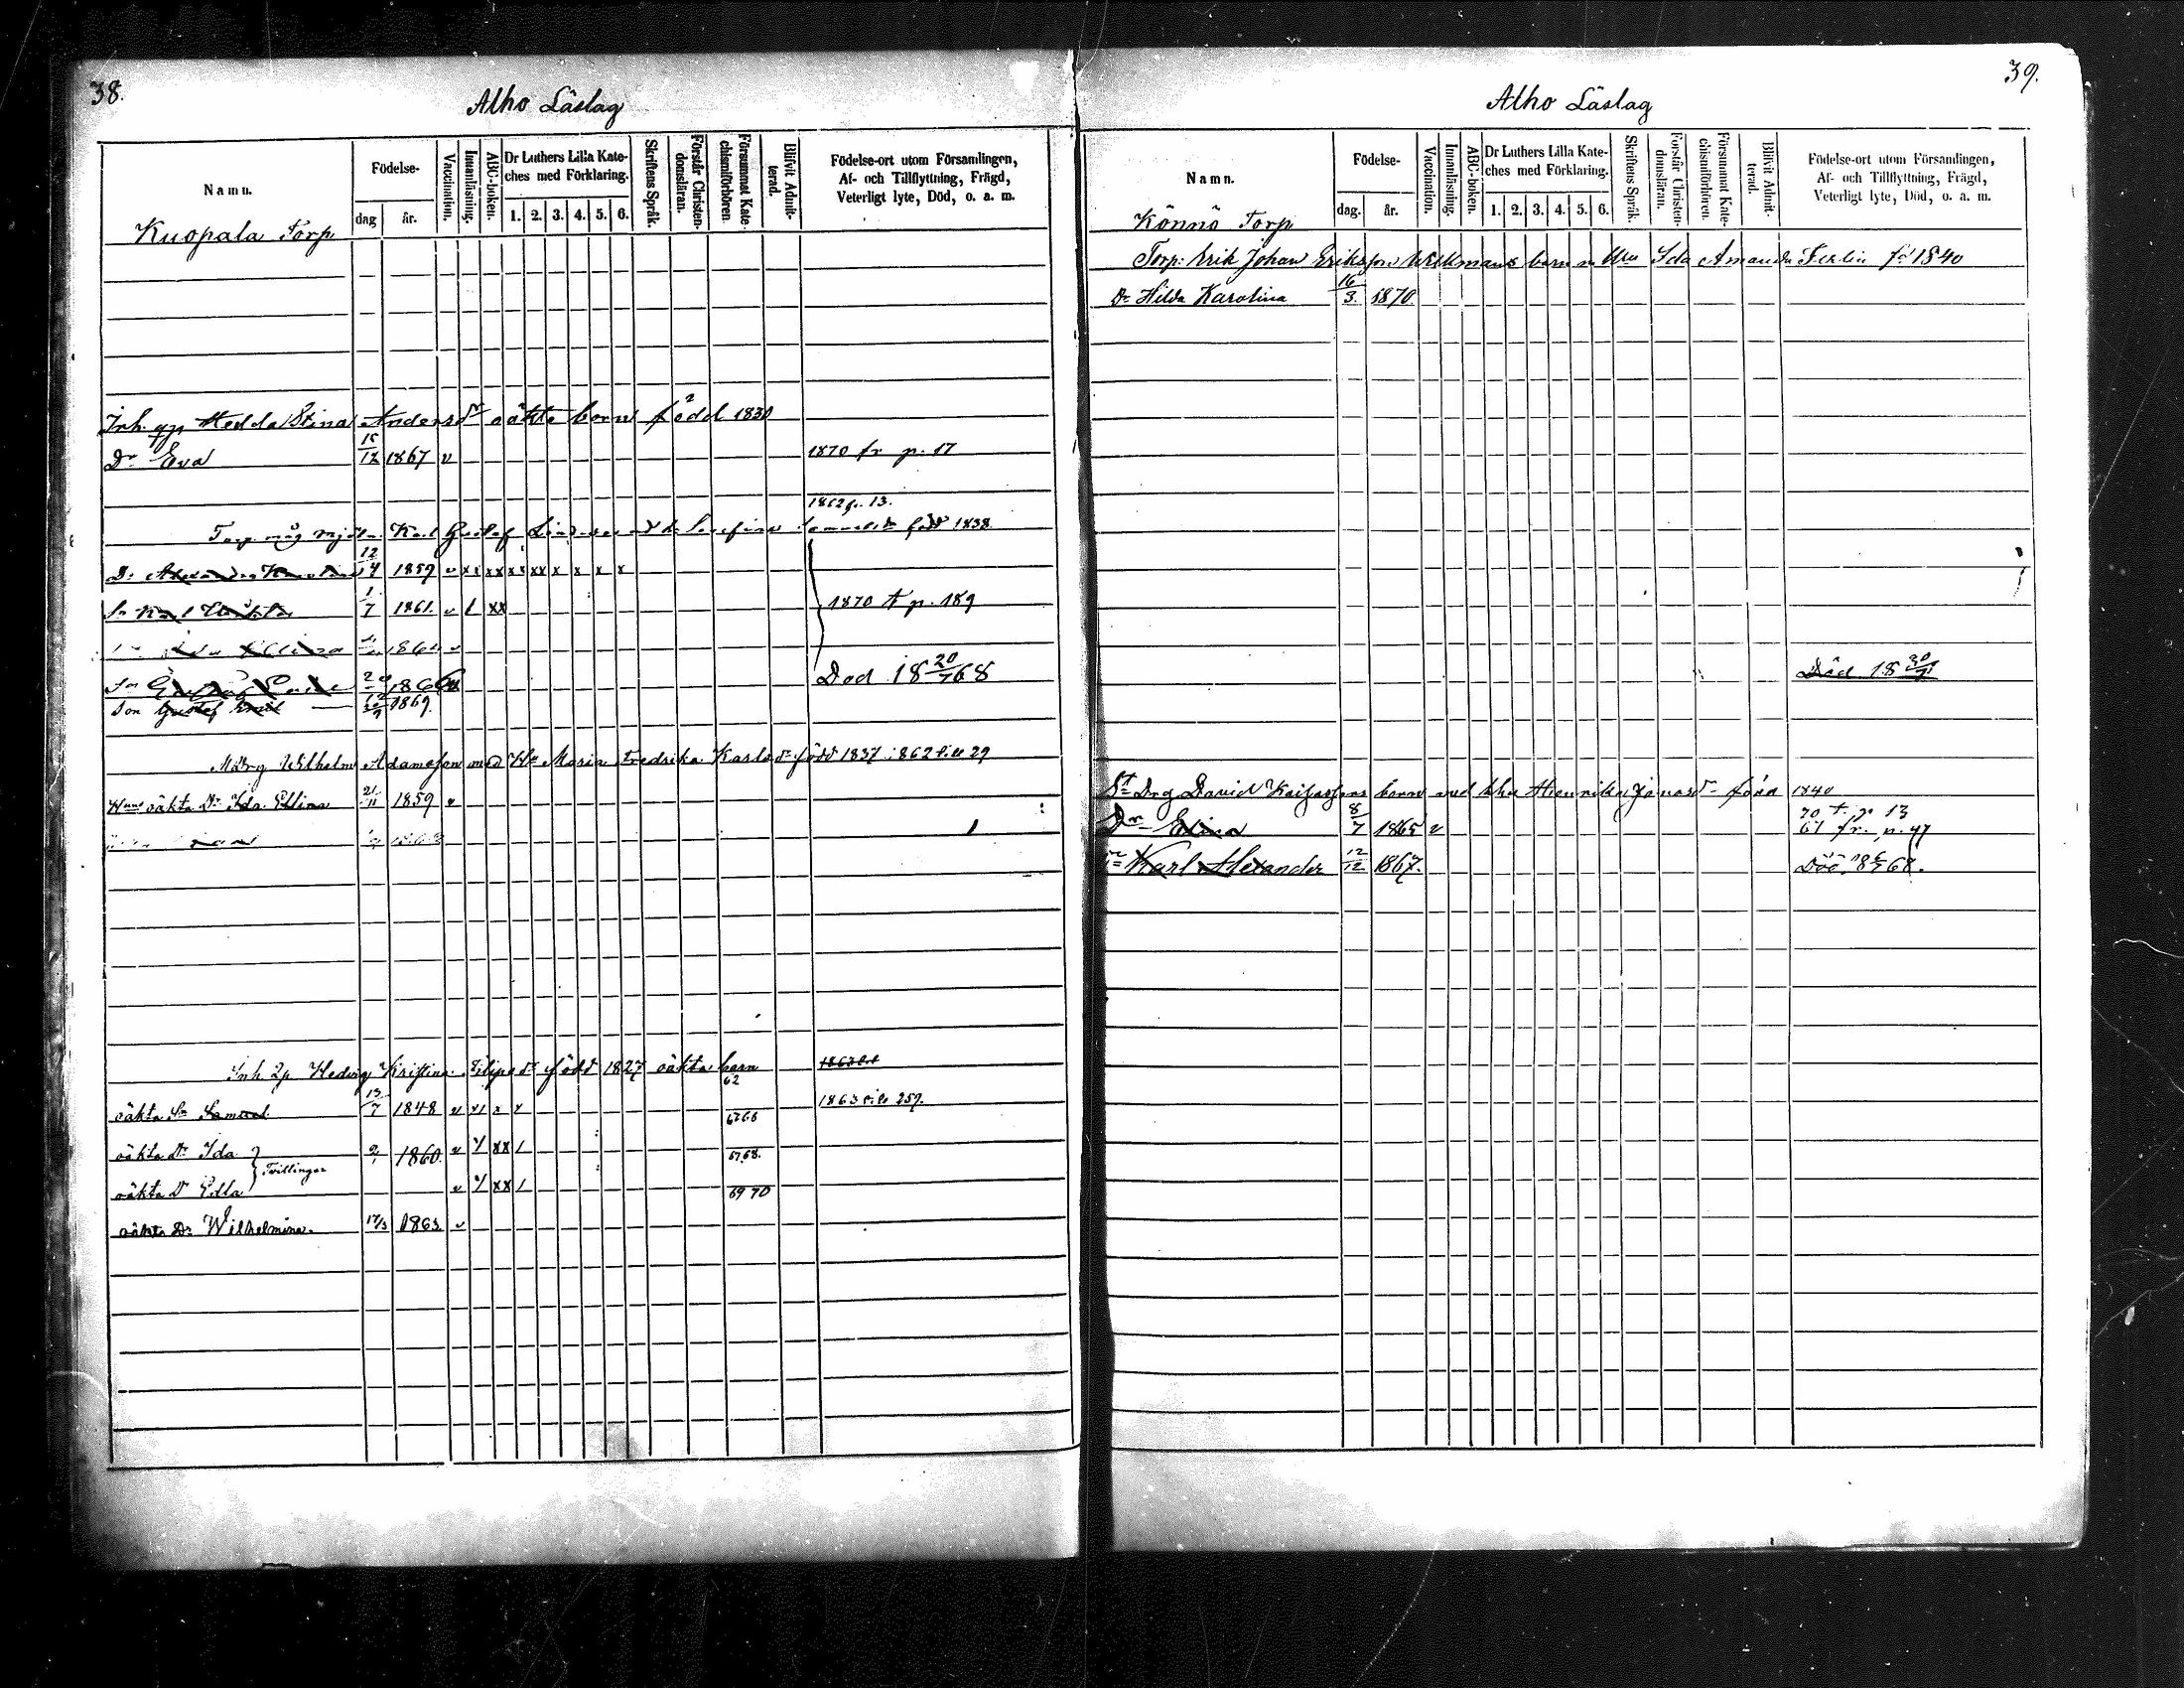 38.
Alho Läslag
Namn.
Födelse-
dag
år.
Vaccination.
Innanläsning.
ABC-boken.
Dr Luthers Lilla Kate-
ches med Förklaring.
1. 2. 3. 4. 5. 6.
Skriftens Språk.
Förstår Christen-
domsläran.
Försummat Kate-
chismiförhören.
Blifvit Admit-
terad.
Födelse-ort utom Församlingen,
Af- och Tillflyttning, Frägd,
Veterligt lyte, Död, o. a. m.
Kuopala Torp
Inh. Hedda Stina Andersdr oäkta barn född 1830
Dr Eva 15/12 1867 v 1870 fr p. 17
1862 fr. 13.
Torp. måg Karl Gustaf född 1838
Dr 12/4 1859 v x x xx xx xx x x x x
Sn Karl 1/7 1861. v 1 xx 1870 t p. 189
Sn 1866 Död 18 20/7 68
Son Gustaf Emil 1869.
Wilhelm Adamsson med Hu Maria Fredrika Karlsdr född 1837 1862 till 29
Huns oäkta Dr Ida Ellina 21/11 1859 v
Inh. Hedvig Kristina Filipsdr född 1827 oäkta barn
62
oäkta Sn Samuel 13/7 1848 v 1863 till 259.
oäkta Dr Ida 1860. v xx 1 67.68.
Tvillingar
oäkta Dr Edla v xx 1 69 70
oäkta Dr Wilhelmina. 17/3 1863 v
39.
Alho Läslag
Namn.
Födelse-
dag.
år.
Vaccination.
Innanläsning.
ABC-boken.
Dr Luthers Lilla Kate-
ches med Förklaring.
1. 2. 3. 4. 5. 6.
Skriftens Språk.
Förstår Christen-
domsläran.
Försummat Kate-
chismiförhören.
Blifvit Admit-
terad.
Födelse-ort utom Församlingen,
Af- och Tillflyttning, Frägd,
Veterligt lyte, Död, o. a. m.
Könnö Torp
Torp: Erik Johan Eriksson Wikmans barn m Hu Ida Amanda Ferlin fd 1840
Dr Hilda Karolina 16/3 1870
Död 18
Drg David barn med Hu Henrika född 1840
70 t. p 13
Dr Elina 8/7 1865 v 67 fr. p. 47
Sn Karl Alexander 12/12 1867. Död 68.